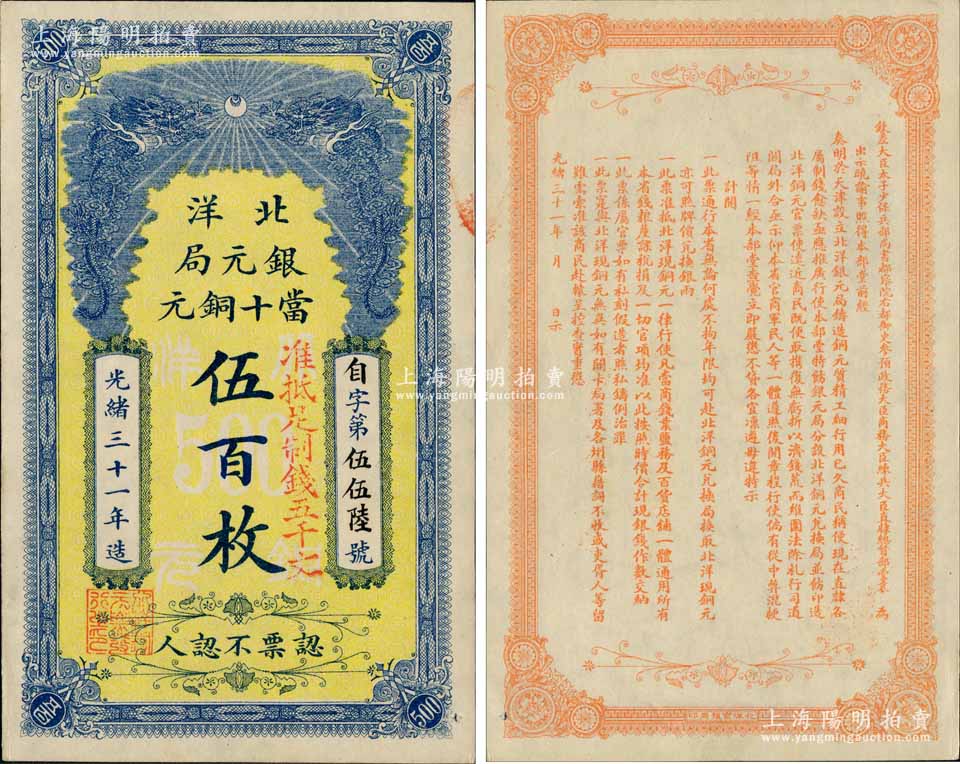 上海陽明拍賣
www.yangmingauction.com
北洋
銀元局
當十銅元
伍百枚
准抵足制錢五千文
自字第伍伍陸號
光緒三十一年造
認票不認人
500
北洋銅元局鑄造銅元質精工細行用已久商民稱便現在直隸各
屬制錢愈缺亟應推廣行使本部堂特飭銀元局分設北洋銅元兌換局並飭印造
北洋銅元官票使遠近商民既便取携復無虧折以濟錢荒而維圜法除札行司道
關局外合亟示仰本省官商軍民人等一體遵照後開章程行使倘有從中弊混
阻等情一經本部堂查覺立即嚴懲不貸各宜凜遵毋違特示
計開
一此票通行本省無論何處不拘年限均可赴北洋銅元兌換局換取北洋現銅元
亦可照牌價兌換銀兩
一此票准抵北洋現銅元一律行使凡當商錢業鹽務及百貨店鋪一體通用所有
本省錢粮厘稅捐及一切官項均准以此按照時價合計現銀錢作數交納
一此票係屬官票如有私刻假造者照私鑄例治罪
一此票寔與北洋現銅元無異如有關卡局署及各州縣藉詞不收或吏胥人等留
難需索准該商民赴轅呈控查實重懲
光緒三十一年 月 日示
上海陽明拍賣
www.yangmingauction.com
上海陽明拍賣
www.yangmingauction.com